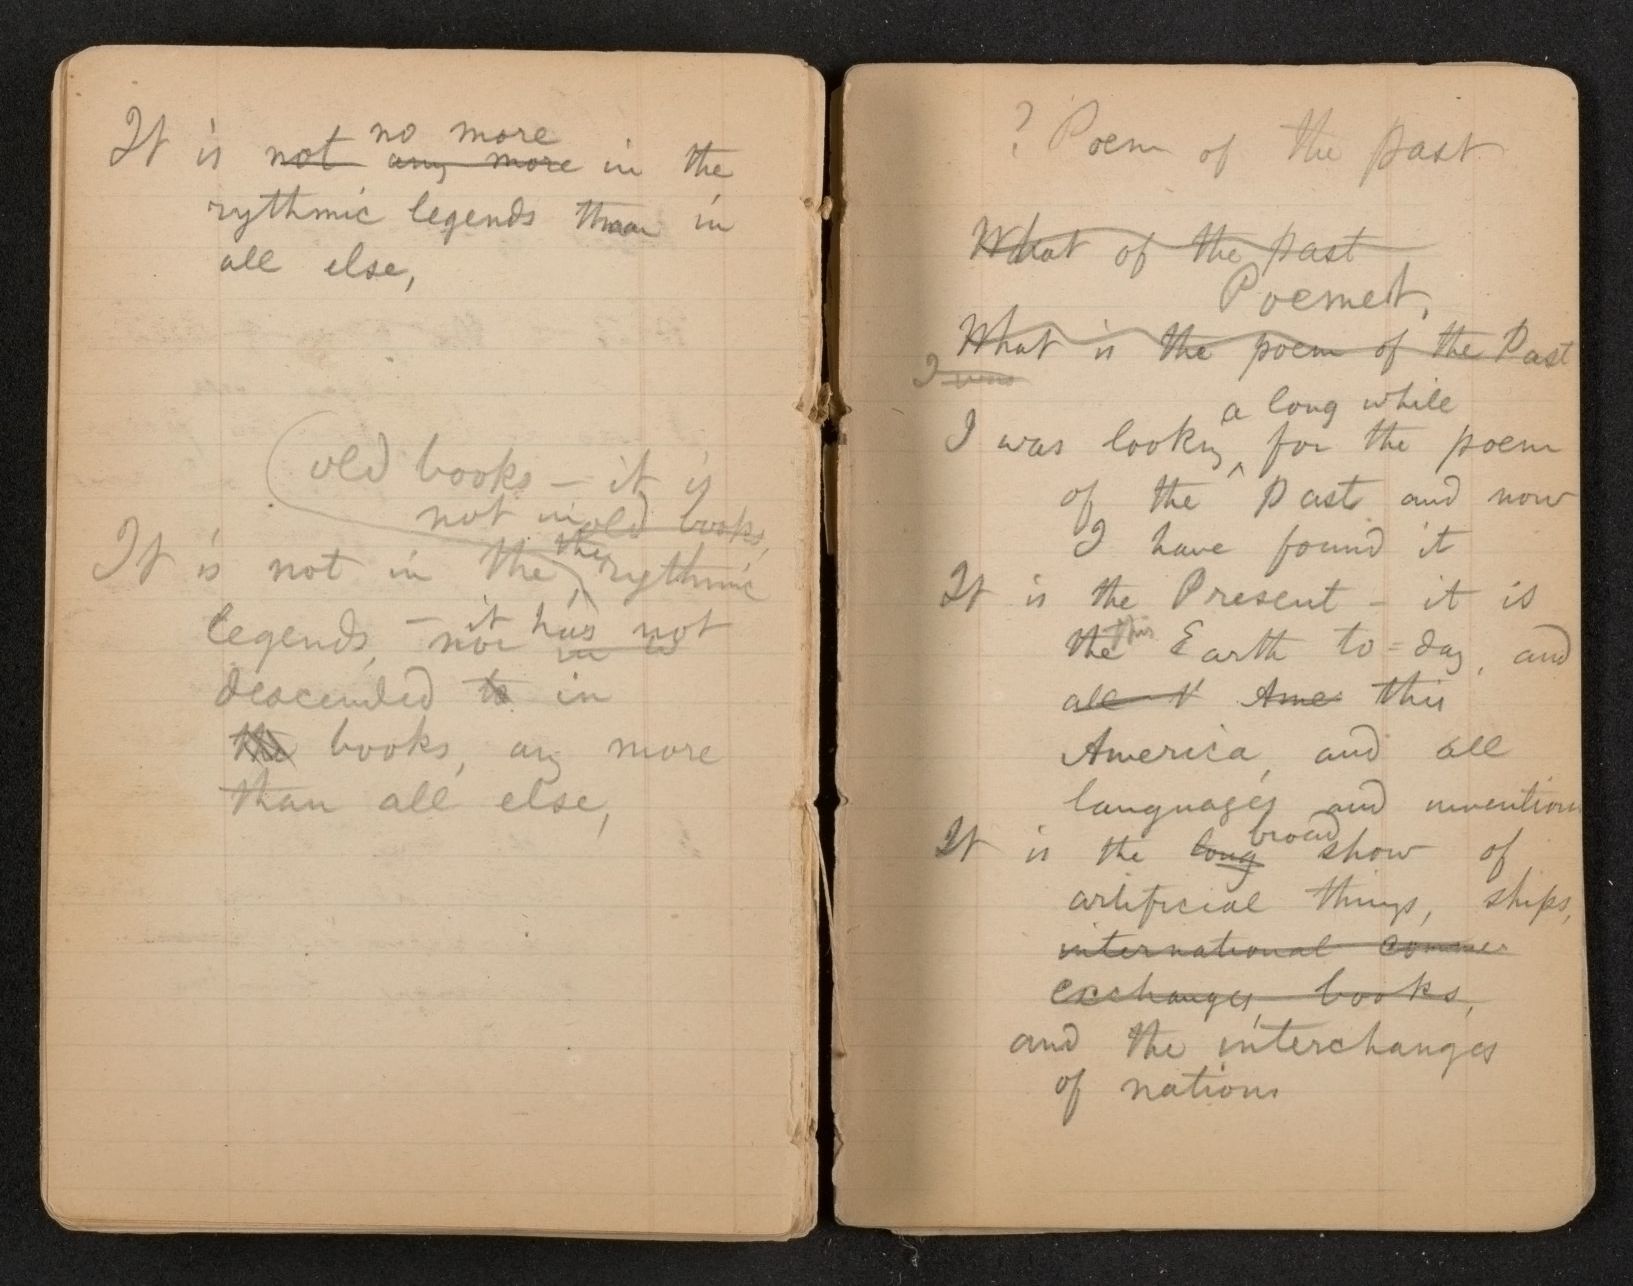 no more
It is not any more in the
rythmic legends than in
all else,
old books — it is
not in old books,
the
It is not in the rythmic
it has not
legends, — nor in w
descended to in
the books, any more
than all else,
? Poem of the past
What of the past
Poemet,
What is the poem of the Past
I was
a long while
I was looking ^ for the poem
of the Past and now
I have found it
It is the Present – it is
this
the Earth to=day, and
all Ame this
America, and all
languages and inventions
broad
It is the long show of
artificial things, ships,
international commer
exchanges, books,
and the interchanges
of nations